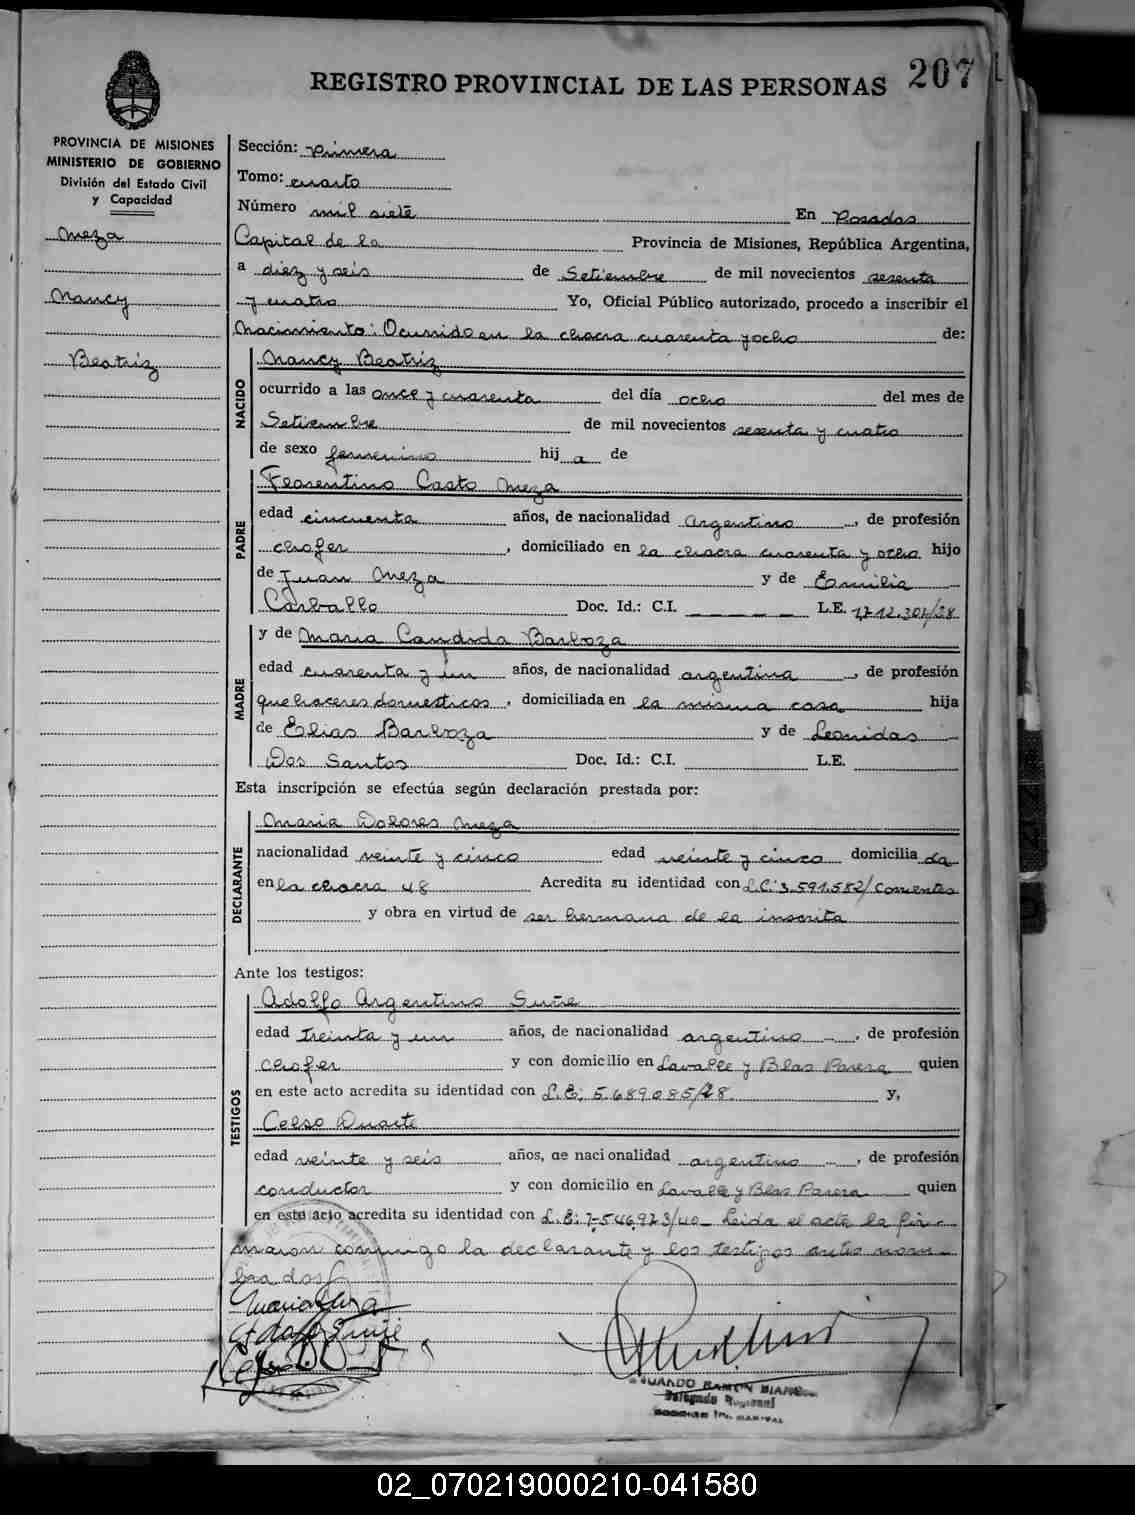 REGISTRO PROVINCIAL DE LAS PERSONAS 207
PROVINCIA DE MISIONES
MINISTERIO DE GOBIERNO
División del Estado Civil
y Capacidad
Meza
Nancy
Beatriz
Sección: primera
Tomo: cuarto
Número mil siete En Posadas
Capital de la Provincia de Misiones, República Argentina,
a diez y seis de Setiembre de mil novecientos sesenta
y cuatro Yo, Oficial Público autorizado, procedo a inscribir el
Nacimiento: Ocurrido en la chacra cuarenta y ocho de:
NACIDO
Nancy Beatriz
ocurrido a las once y cuarenta del día ocho del mes de
Setiembre de mil novecientos sesenta y cuatro
de sexo femenino hij a de
PADRE
Florentino Casto Meza
edad cincuenta años, de nacionalidad Argentino, de profesión
chofer, domiciliado en la chacra cuarenta y ocho hijo
de Juan Meza y de Emilia
Carballo Doc. Id.: C.I. L.E.
MADRE
y de Maria Candida Barboza
edad cuarenta y un años, de nacionalidad argentina, de profesión
quehaceres domesticos, domiciliada en la misma casa hija
de Elias Barboza y de Leonidas
Dos Santos Doc. Id.: C.I. L.E.
Esta inscripción se efectúa según declaración prestada por:
DECLARANTE
Maria Dolores Meza
nacionalidad veinte y cinco edad veinte y cinco domicilia da
en la chacra 48 Acredita su identidad con L.C: 3.591.582/ Corrientes
y obra en virtud de ser hermana de la inscrita
Ante los testigos:
TESTIGOS
Adolfo Argentino Suñe
edad treinta y un años, de nacionalidad argentino, de profesión
chofer y con domicilio en Lavalle y Blas Parera quien
en este acto acredita su identidad con L.E: 5.689.085/28 y,
Celso Duarte
edad veinte y seis años, de nacionalidad argentino, de profesión
conductor y con domicilio en Lavalle y Blas Parera quien
en este acto acredita su identidad con L.E: 7.546.973/40_ Leida el acta la fir-
maron conmigo la declarante y los testigos antes nom-
brados
Delegado Regional
02_070219000210-041580